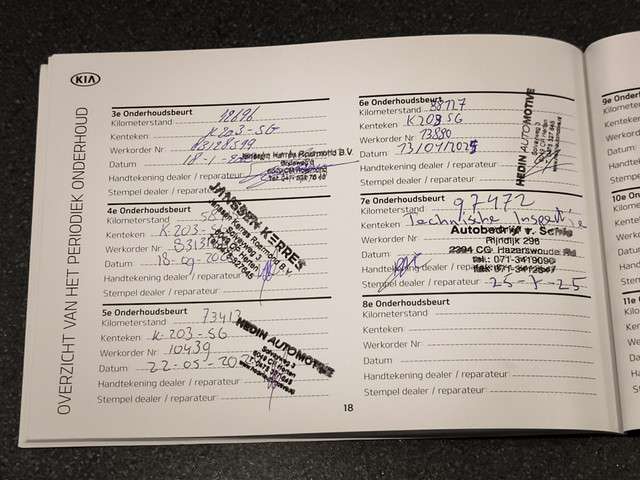 KIA
OVERZICHT VAN HET PERIODIEK ONDERHOUD
3e Onderhoudsbeurt
Kilometerstand
Kenteken K203-SG
Werkorder Nr. 83128519
Datum 18-1-
Janssen Kerres Roermond B.V.
Handtekening dealer / reparateur
Stempel dealer / reparateur
4e Onderhoudsbeurt
Kilometerstand
Kenteken K-203-SG
Werkorder Nr.
Datum 18-09-
Handtekening dealer / reparateur
Stempel dealer / reparateur :
JANSSEN KERRES
Janssen Kerres Roermond B.V.
Solvayweg 3
5e Onderhoudsbeurt
Kilometerstand 73413
Kenteken K-203-SG
Werkorder Nr. 10439
Datum 22-05-20
Handtekening dealer / reparateur :
Stempel dealer / reparateur :
HEDIN AUTOMOTIVE
Solvayweg 3
6e Onderhoudsbeurt
Kilometerstand 88127
Kenteken K203SG
Werkorder Nr. 13890
Datum 13/01/2025
Handtekening dealer / reparateur
Stempel dealer / reparateur :
HEDIN AUTOMOTIVE
Solvayweg 3
7e Onderhoudsbeurt
Kilometerstand 97472
Kenteken Technische Inspectie
Werkorder Nr.
Autobedrijf v.
Rijndijk 296
Datum
2394 CG Hazerswoude
tel.: 071-3419090
Handtekening dealer / reparateur
fax: 071-3412647
Stempel dealer / reparateur : 25-7-25
8e Onderhoudsbeurt
Kilometerstand
Kenteken
Werkorder Nr.
Datum
Handtekening dealer / reparateur :
Stempel dealer / reparateur :
18
9e On
Kilome
Kente
Werko
Datum
Handt
Stemp
10e O
Kilom
Kente
Werk
Datu
Hand
Stem
11e
Kilo